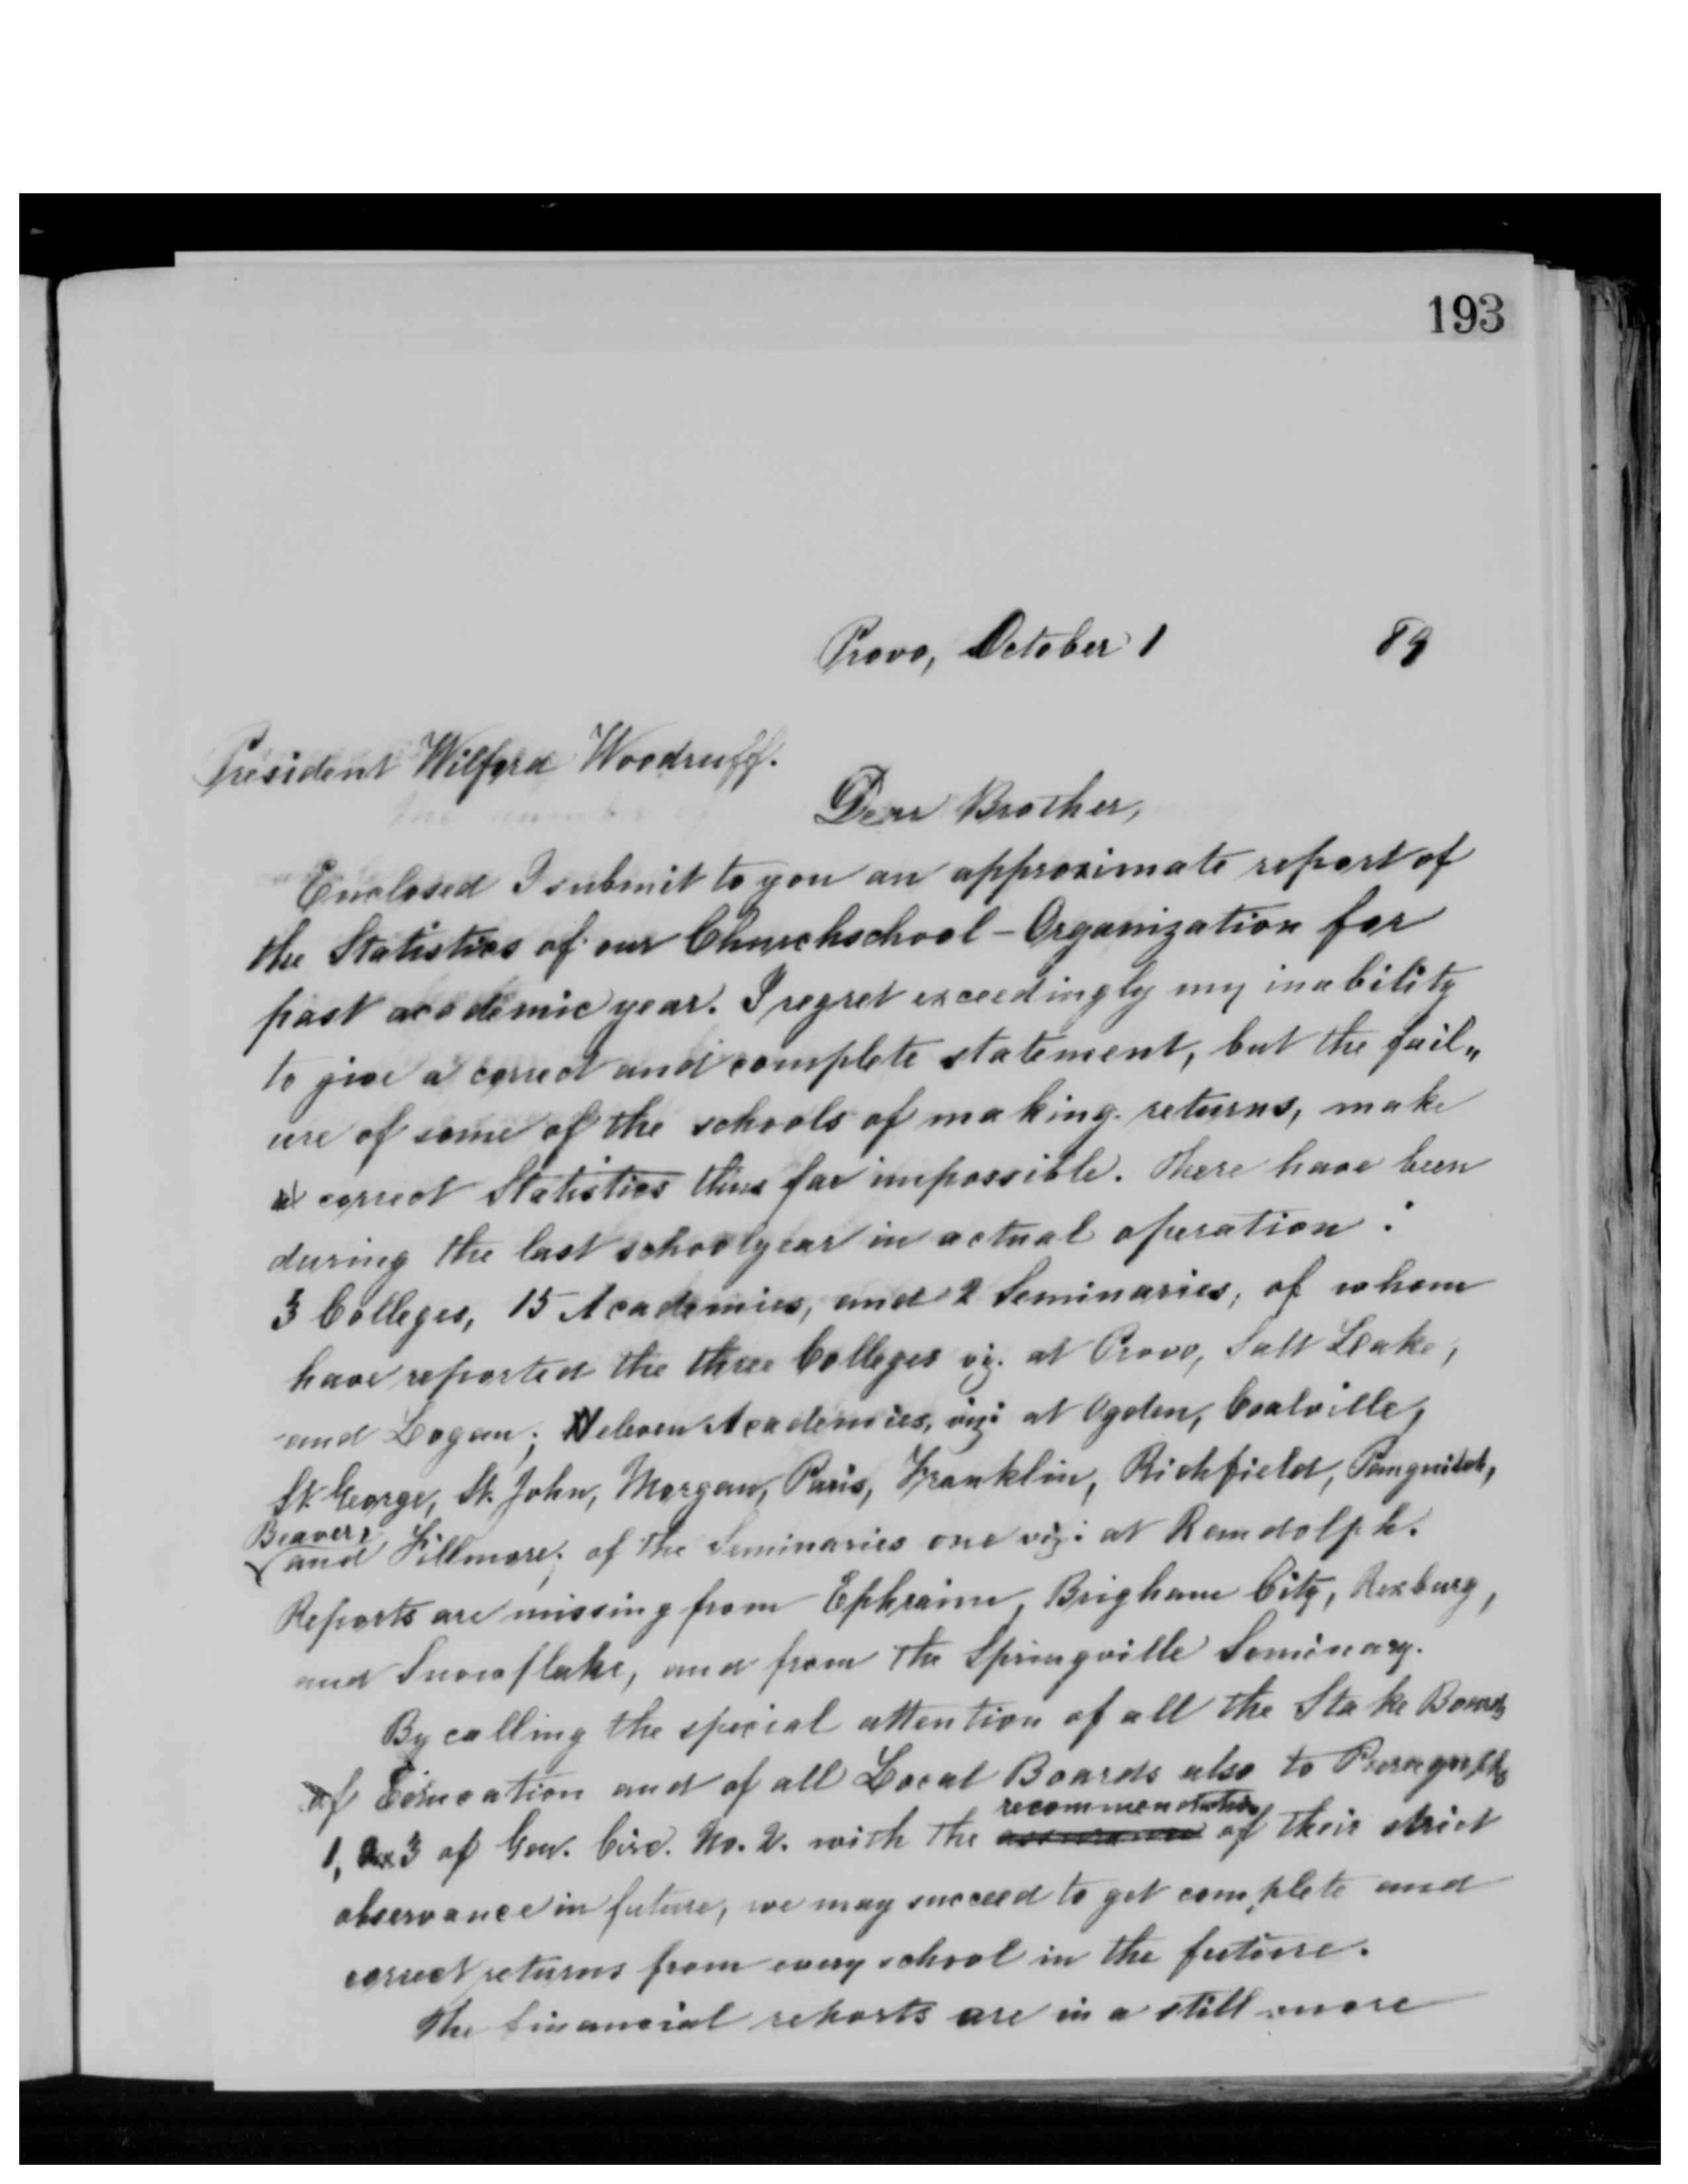 193
Provo, October 1 89
President Wilford Woodruff.
Dear Brother,
Enclosed I submit to you an approximate report of
the Statistics of our Churchschool-Organization for
past academic year. I regret exceedingly my inability
to give a correct and complete statement, but the fail„
ure of some of the schools of making returns, make
a correct Statistics thus far impossible. There have been
during the last schoolyear in actual operation:
3 Colleges, 15 Academies, and 2 Seminaries, of whom
have reported the three Colleges viz. at Provo, Salt Lake,
and Logan; eleven Academies, viz: at Ogden, Coalville,
St. George, St. John, Morgan, Paris, Franklin, Richfield, Panguitch,
Beaver,
and Fillmore; of the Seminaries one viz: at Randolph.
Reports are missing from Ephraim, Brigham City, Rexburg,
and Snowflake, and from the Springville Seminary.
By calling the special attention of all the Stake Boards
of Education and of all Local Boards also to Paragraphs
recommendation
1, 2 & 3 of Gen. Circ. No. 2. with the of their strict
observance in future, we may succeed to get complete and
correct returns from every school in the future.
The financial reports are in a still more